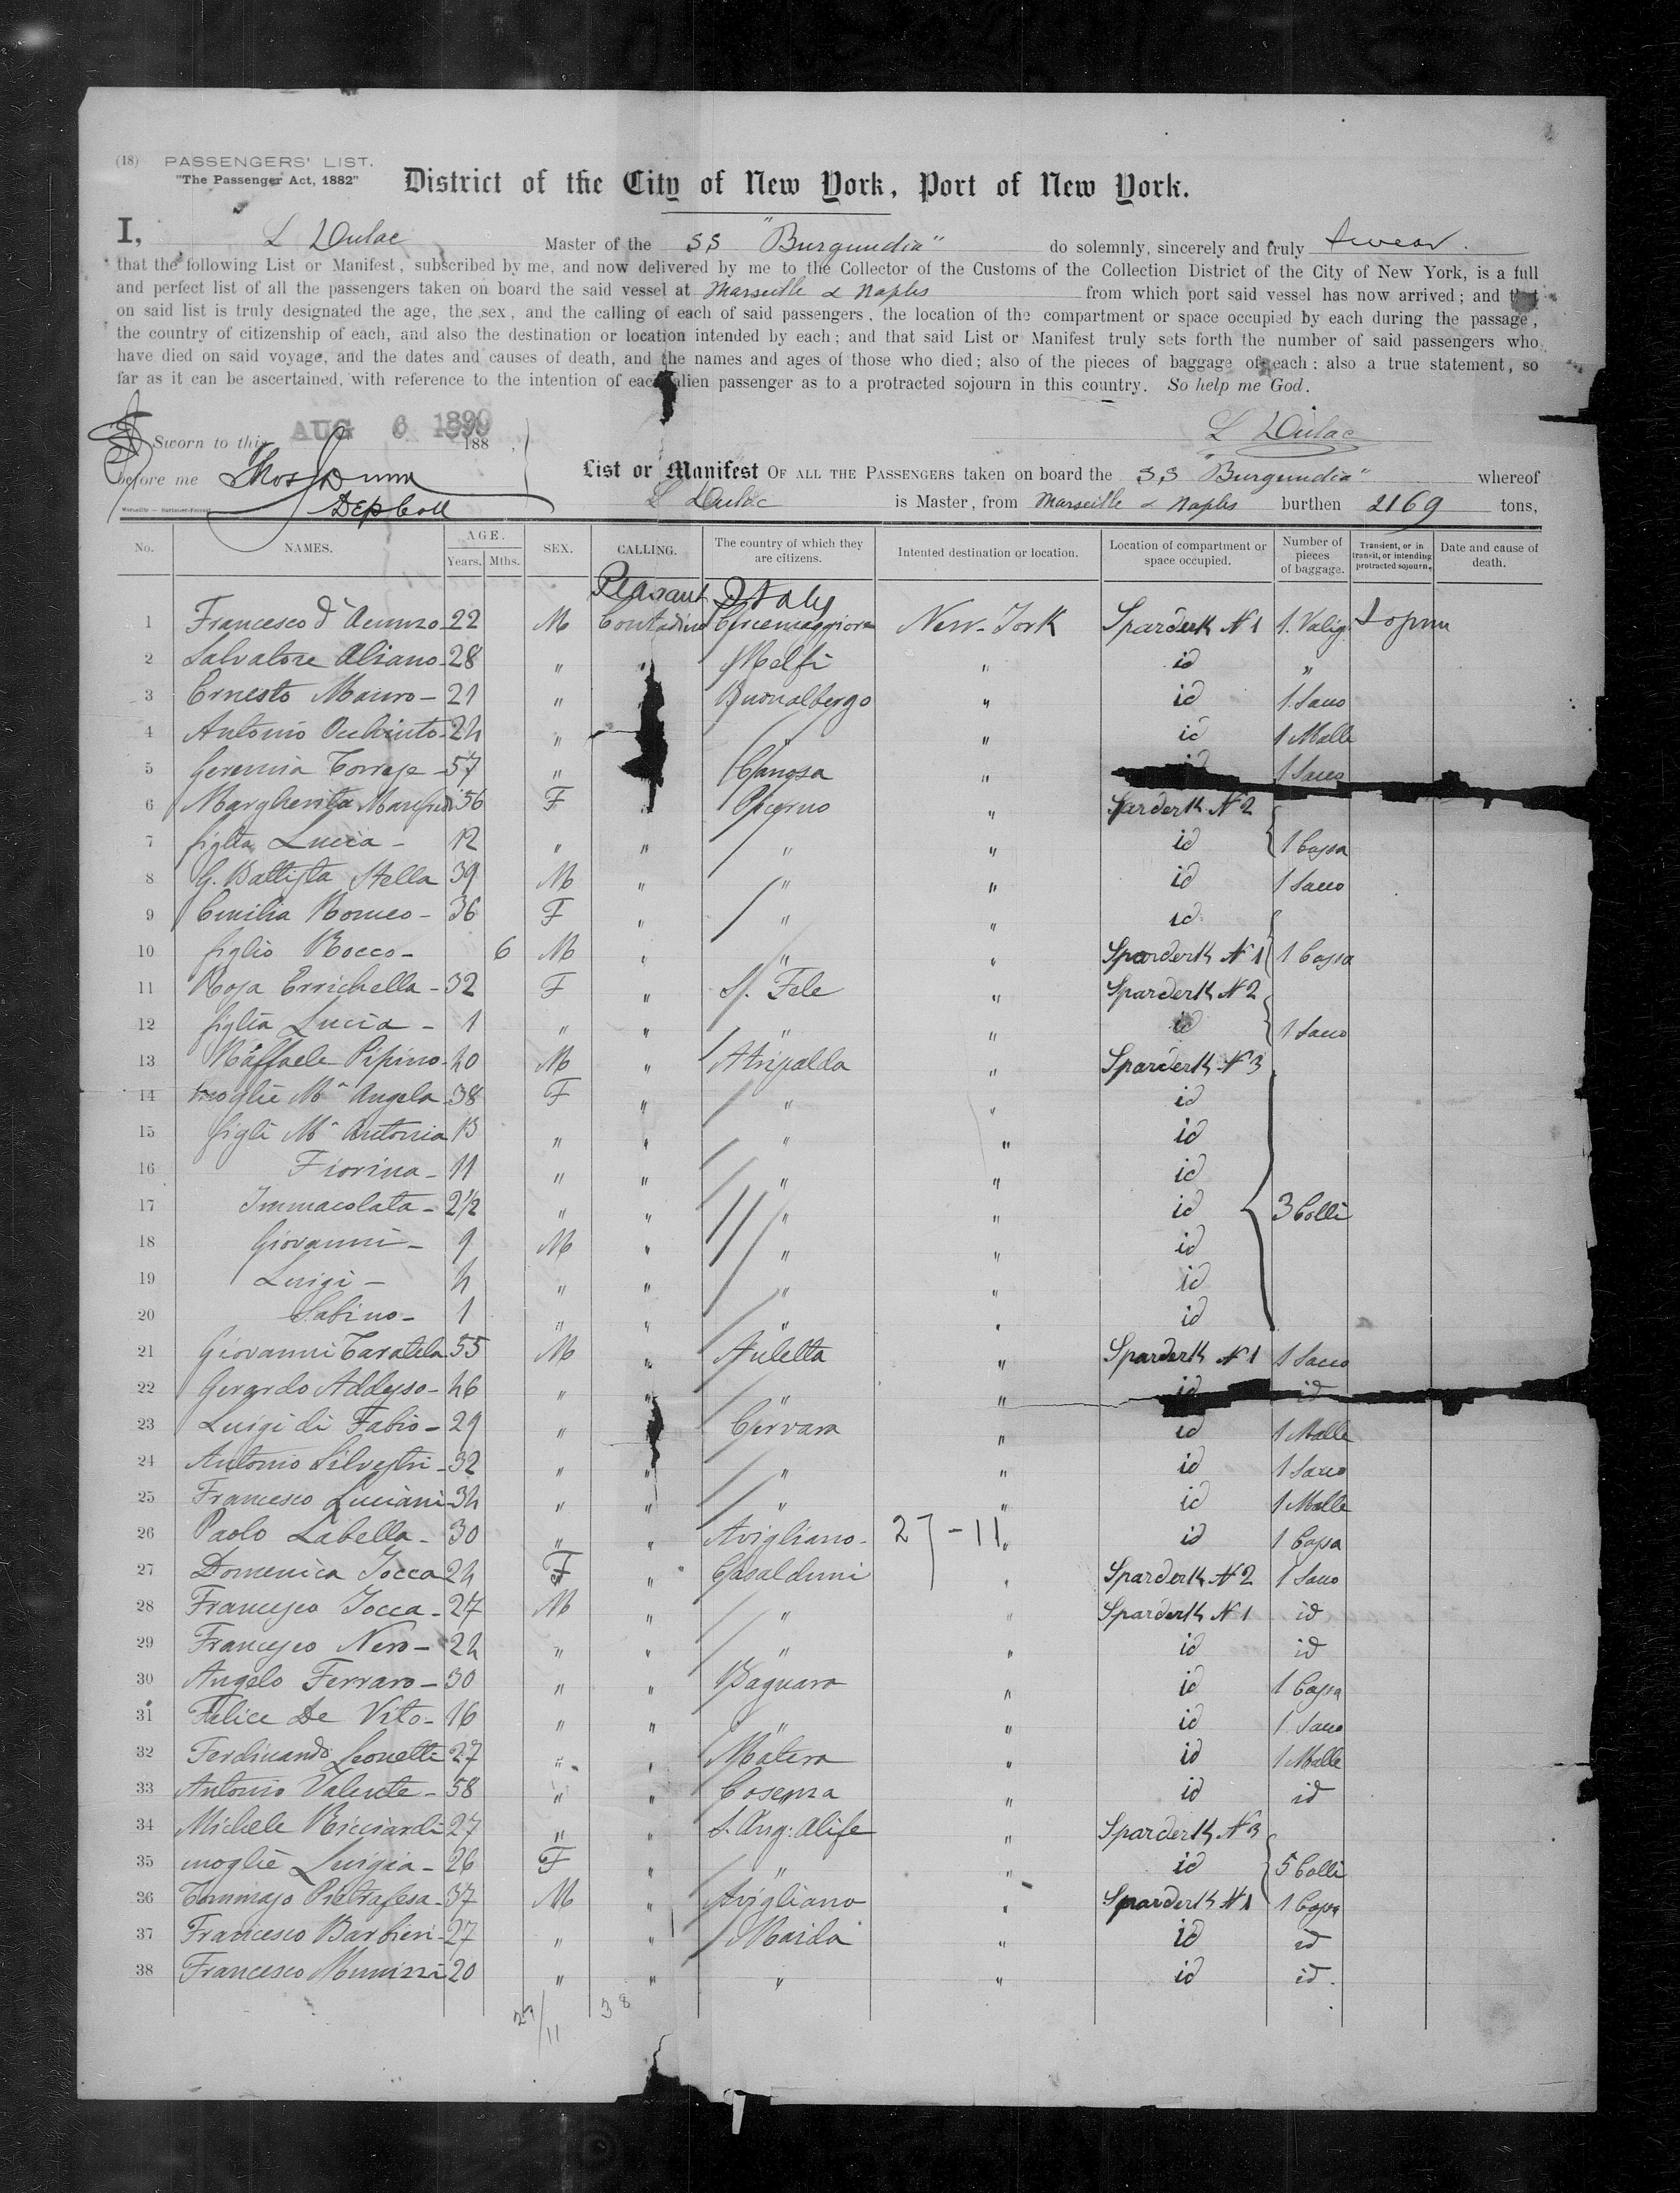 (18) PASSENGERS' LIST.
"The Passenger Act, 1882"
District of the City of New York, Port of New York.
I, L Dulac Master of the SS "Burgundia" do solemnly, sincerely and truly swear.
that the following List or Manifest, subscribed by me, and now delivered by me to the Collector of the Customs of the Collection District of the City of New York, is a full
and perfect list of all the passengers taken on board the said vessel at Marseille & Naples from which port said vessel has now arrived; and that
on said list is truly designated the age, the sex, and the calling of each of said passengers, the location of the compartment or space occupied by each during the passage,
the country of citizenship of each, and also the destination or location intended by each; and that said List or Manifest truly sets forth the number of said passengers who
have died on said voyage, and the dates and causes of death, and the names and ages of those who died; also of the pieces of baggage of each: also a true statement, so
far as it can be ascertained, with reference to the intention of each alien passenger as to a protracted sojourn in this country. So help me God.
Sworn to this AUG 6 1890 188 , L Dulac
before me Thos Dunn
Dep Coll
List or Manifest OF ALL THE PASSENGERS taken on board the SS "Burgundia" whereof
L Dulac is Master, from Marseille & Naples burthen 2169 tons,
No. NAMES. AGE. Years. Mths. SEX. CALLING. The country of which they are citizens. Intented destination or location. Location of compartment or space occupied. Number of pieces of baggage. Transient, or in transit, or intending protracted sojourn. Date and cause of death.
Peasant Italy
1 Francesco d' 22 M Contadino Cercemaggiore New-York Spardeck N 1 1 Valig.
2 Salvatore Aliano - 28 " " Melfi " id "
3 Ernesto Mauro - 21 " Buonalbergo " id 1 Sacco
4 Antonio 24 " " " id 1 Malle
5 Geremia 57 " Canosa " id 1 Sacco
6 Margherita 56 F " " Spardeck N 2
7 figlia Lucia - 12 " " " " id 1 Cassa
8 G. Battista Stella 39 M " " " id 1 Sacco
9 Emilia Romeo - 36 F " " " id
10 figlio Rocco - 6 M " " " Spardeck N 1 1 Cassa
11 Rosa Errichella - 32 F " S. Fele " Spardeck N 2
12 figlia Lucia - 1 " " " " id 1 Sacco
13 Raffaele Pipino - 40 M " Atripalda " Spardeck N 3
14 moglie Ma Angela - 38 F " " " id
15 figli Ma Antonia 13 " " " " id
16 Fiorina - 11 " " " " id
17 Immacolata - 2 1/2 " " " " id 3 Colli
18 Giovanni - 9 M " " " id
19 Luigi - 4 " " " " id
20 Sabino - 1 " " " " id
21 Giovanni 55 M " Auletta " Spardeck N 1 1 Sacco
22 Gerardo Addesso - 46 " " " " id id
23 Luigi di Fabio - 29 " Cervara " id 1 Malle
24 Antonio Silvestri - 32 " " " " id 1 Sacco
25 Francesco Luciani - 34 " " " " id 1 Malle
26 Paolo Labella - 30 " " Avigliano - 27 - 11 " id 1 Cassa
27 Domenica Iocca 24 F " Casalduni " Spardeck N 2 1 Sacco
28 Francesco Iocca - 27 M " " " Spardeck N 1 id
29 Francesco Nero - 24 " " " " id id
30 Angelo Ferraro - 30 " " Bagnara " id 1 Cassa
31 Felice De Vito - 16 " " " " id 1 Sacco
32 Ferdinando Leonetti 27 " " Matera " id 1 Malle
33 Antonio Valente - 58 " " Cosenza " id id
34 Michele Ricciardi 27 " " S. Ang: Alife " Spardeck N 3
35 moglie Luigia - 26 F " " " id 5 Colli
36 Tommaso Pietrafesa - 37 M " Avigliano " Spardeck N 1 1 Cassa
37 Francesco Barbieri - 27 " " Maida " id id
38 Francesco 20 " " " " id id.
27/11 38